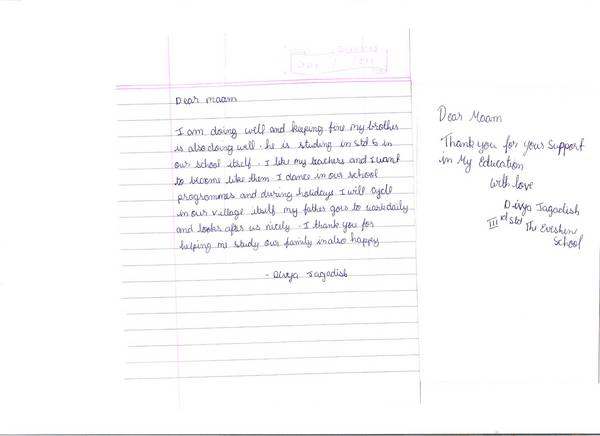 Dear maam
I am doing well and keeping fine my brother
is also doing well. he is studing in std 5 in
our school itself. I like my teachers and I want
to become like them. I dance in our school
programmes and during holidays I will cycle
in our village itself my father goes to work daily
and looks after us nicely. I thank you for
helping me study our family in also happy
- Divya Jagadish
Dear Maam
Thank you for your Support
in My Education
with love
Divya Jagadish
IIIrd Std The
School